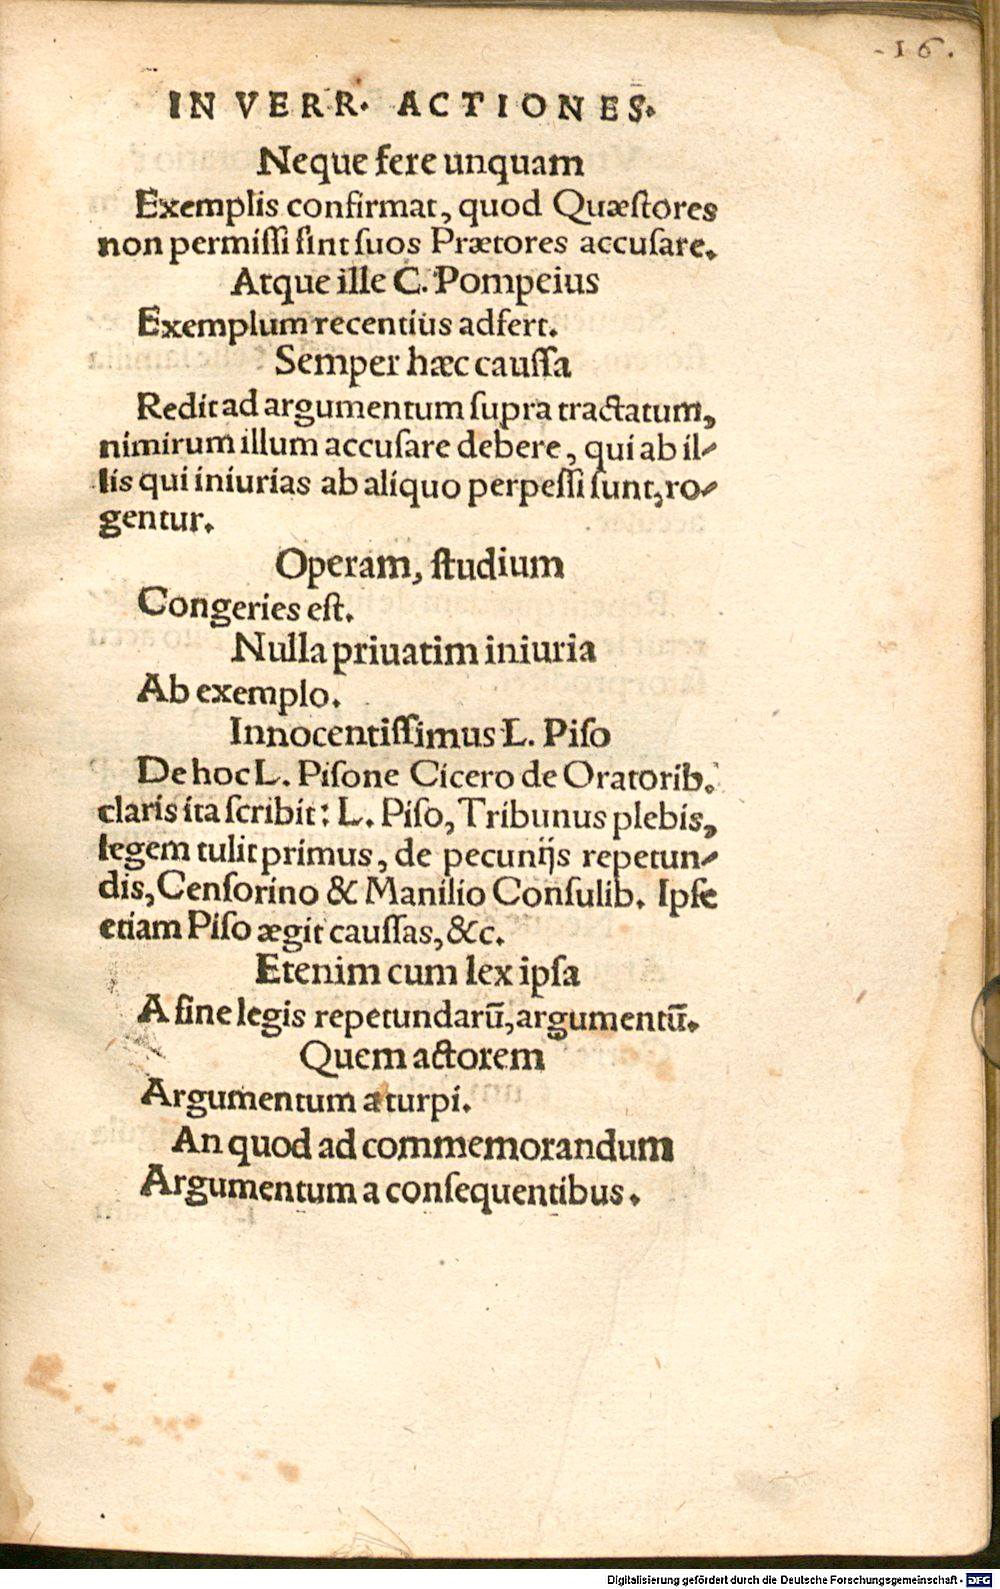 16.
IN VERR. ACTIONES.
Neque fere unquam
Exemplis confirmat, quod Quæſtores
non permiſſi ſint ſuos Prætores accuſare.
Atque ille C. Pompeius
Exemplum recentius adfert.
Semper hæc cauſſa
Redit ad argumentum ſupra tractatum,
nimirum illum accuſare debere, qui ab il-
lis qui iniurias ab aliquo perpeſſi ſunt, ro-
gentur.
Operam, ſtudium
Congeries eſt.
Nulla priuatim iniuria
Ab exemplo.
Innocentiſſimus L. Piſo
De hoc L. Piſone Cicero de Oratorib.
claris ita ſcribit: L. Piſo, Tribunus plebis,
legem tulit primus, de pecunijs repetun-
dis, Cenſorino & Manilio Conſulib. Ipſe
etiam Piſo ægit cauſſas, &c.
Etenim cum lex ipſa
A fine legis repetundarū, argumentū.
Quem actorem
Argumentum a turpi.
An quod ad commemorandum
Argumentum a conſequentibus.
Digitalisierung gefördert durch die Deutsche Forschungsgemeinschaft - DFG